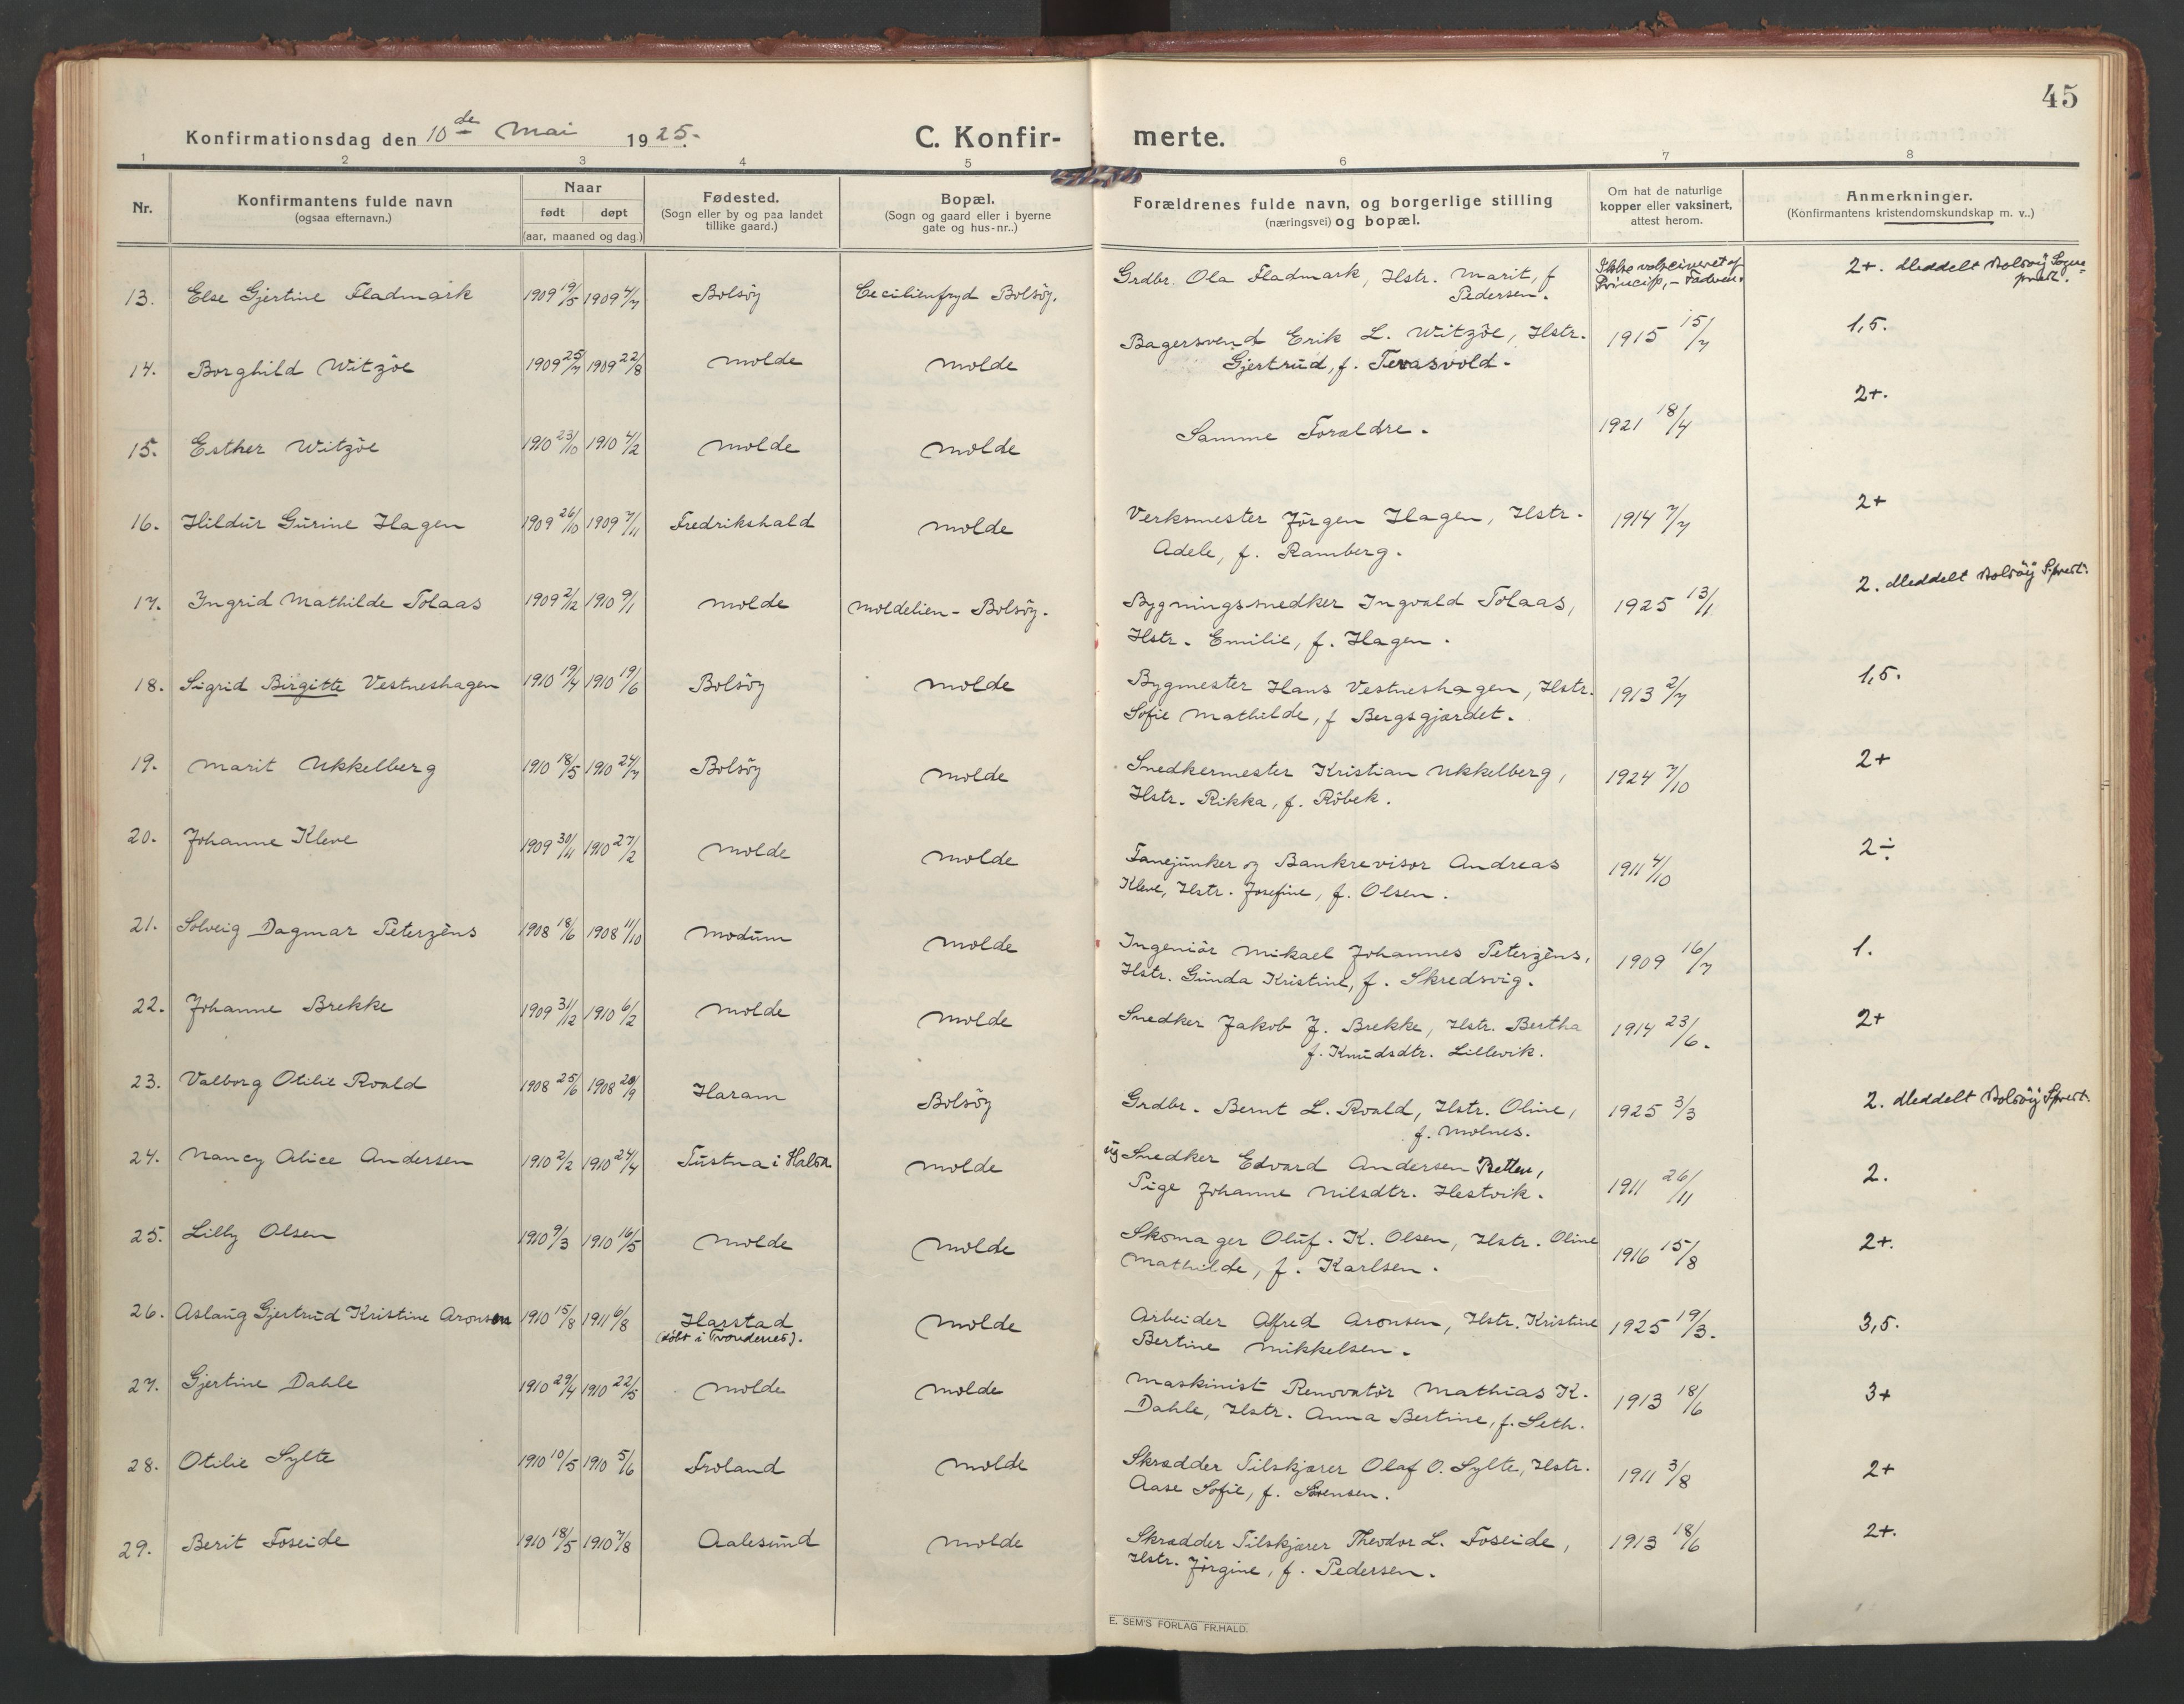 45
Konfirmationsdag den 10de Mai 1925.
C. Konfirmerte.
1 2 3 4 5 6 7 8
Nr.
Konfirmantens fulde navn
(ogsaa efternavn.)
Naar
født døpt
(aar, maaned og dag.)
Fødested.
(Sogn eller by og paa landet
tillike gaard.)
Bopæl.
(Sogn og gaard eller i byerne
gate og hus-nr..)
Forældrenes fulde navn, og borgerlige stilling
(næringsvei) og bopæl.
Om hat de naturlige
kopper eller vaksinert,
attest herom.
Anmerkninger.
(Konfirmantens kristendomskundskap m. v..)
13. Else Gjertine Fladmark 1909 19/5 1909 4/7 Bolsöy Cecilienfryd Bolsöy. Grdbr. Ola Fladmark, Hstr. Marit, f Pedersen. Ikke vakcineret af Princip, - Faderen. 2+. Meddelt Bolsöy Sogneprest.
14. Borghild Witzöe 1909 25/7 1909 22/8 Molde Molde Bagersvend Erik L. Witzöe, Hstr.
Gjertrud, f. Tevasvold. 1915 15/7 1,5.
15. Esther Witzöe 1910 23/10 1910 4/2 Molde Molde Samme Forældre. 1921 18/4 2+.
16. Hildur Gurine Hagen 1909 26/10 1909 7/11 Fredrikshald Molde Verksmester Jörgen Hagen, Hstr.
Adele, f. Ramberg. 1914 7/7 2+
17. Ingrid Mathilde Tolaas 1909 2/12 1910 9/1 Molde Moldelien - Bolsöy. Bygningssnedker Ingvald Tolaas,
Hstr. Emilie, f. Hagen. 1925 13/1 2. Meddelt Bolsöy S.prest.
18. Sigrid Birgitte Vestneshagen 1910 19/4 1910 19/6 Bolsöy Molde Bygmester Hans Vestneshagen, Hstr.
Sofie Mathilde, f Bergsgjærdet. 1913 2/7 1,5.
19. Marit Ukkelberg 1910 18/5 1910 24/7 Bolsöy Molde Snedkermester Kristian Ukkelberg,
Hstr. Rikka, f. Röbek. 1924 7/10 2+
20. Johanne Kleve 1909 30/11 1910 27/2 Molde Molde Fanejunker og Bankrevisor Andreas
Kleve, Hstr. Josefine, f. Olsen. 1911 4/10 2÷
21. Solveig Dagmar Peterzéns 1908 18/6 1908 11/10 Modum Molde Ingeniör Mikael Johannes Peterzéns,
Hstr. Gunda Kristine, f. Skredsvig. 1909 16/7 1.
22. Johanne Brekke 1909 31/12 1910 6/2 Molde Molde Snedker Jakob J. Brekke, Hstr. Bertha
f. Knudsdtr. Lillevik. 1914 23/6. 2+
23. Valborg Otilie Roald 1908 25/6 1908 20/9 Haram Bolsöy Grdbr. Bernt L. Roald, Hstr. Oline,
f. Molnes. 1925 3/3 2. Meddelt Bolsöy S.prest.
24. Nancy Alice Andersen 1910 2/2 1910 24/4 Tustna i Halsa Molde ug Snedker Edvard Andersen Retten,
Pige Johanne Nilsdtr. Hestvik. 1911 26/11 2.
25. Lilly Olsen 1910 9/3 1910 16/5 Molde Molde Skomager Oluf. K. Olsen, Hstr. Oline
Mathilde, f. Karlsen. 1916 15/8 2+.
26. Aslaug Gjertrud Kristine Aronsen 1910 15/8 1911 6/8 Harstad (döbt i Trondenes). Molde Arbeider Alfred Aronsen, Hstr. Kristine
Bertine Mikkelsen. 1925 19/3. 3,5.
27. Gjertine Dahle 1910 29/4 1910 22/5 Molde Molde Maskinist Renovatör Mathias K.
Dahle, Hstr. Anna Bertine, f. Seth. 1913 18/6 3+
28. Otilie Sylte 1910 10/5 1910 5/6 Froland Molde Skrædder Tilskjærer Olaf O. Sylte, Hstr.
Aase Sofie, f. Sörensen. 1911 3/8 2+
29. Berit Foseide 1910 18/5 1910 7/8 Aalesund Molde Skrædder Tilskjærer Theodor L. Foseide,
Hstr. Jörgine, f. Pedersen. 1913 18/6 2+.
E. SEM'S FORLAG FR.HALD.